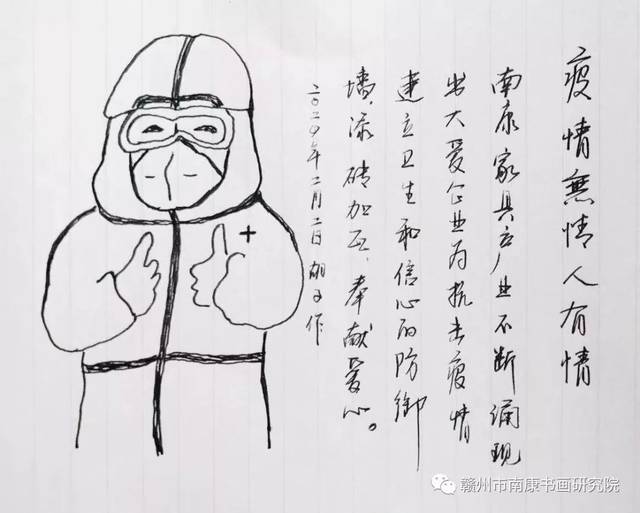 疫情無情人有情
南康家具产业不断涌现
出大爱企业为抗击疫情
建立卫生和信心的防御
墙，添砖加瓦，奉献爱心。
二〇二〇年二月二日 胡子作
赣州市南康书画研究院